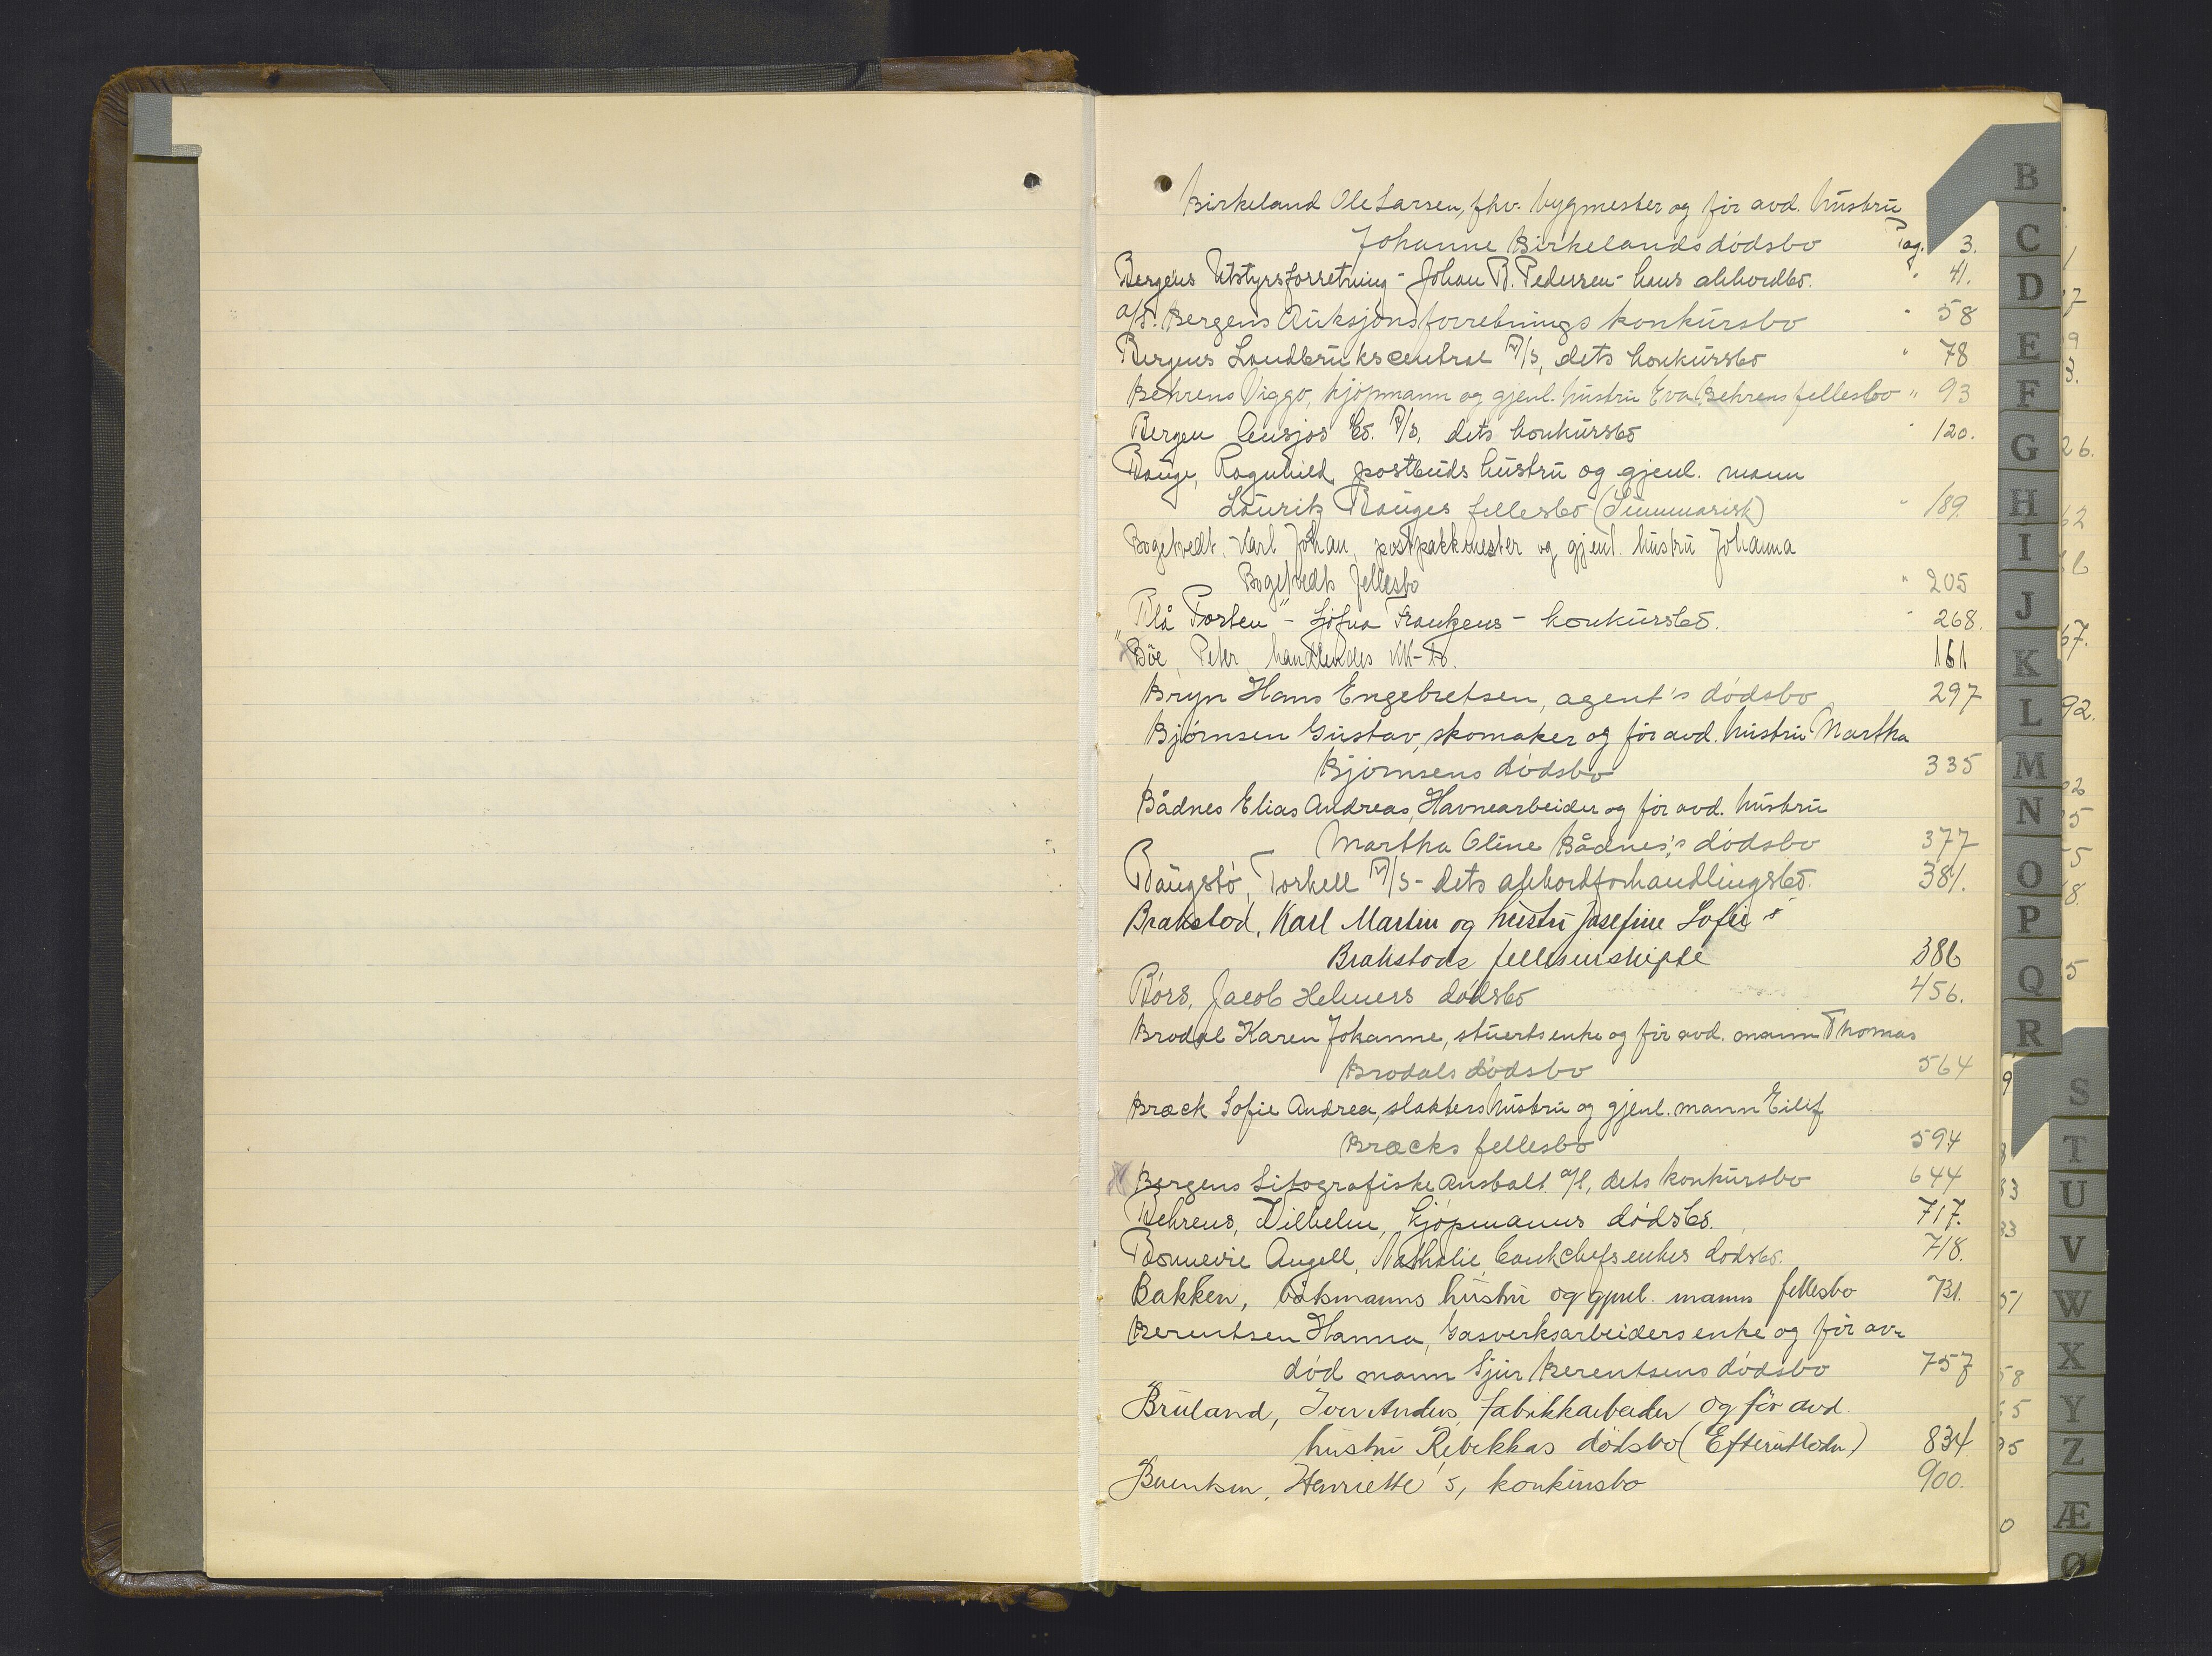 Birkeland Ole Larsen, fhv. bygmester og før avd. hustru
Johanne Birkelands dødsbo Pag. 3.
Bergens Utstyrsforretning - Johan B. Pedersen - hans akkordbo. " 41.
a/s. Bergens Auksjonsforretnings konkursbo " 58
Bergens Landbrukscentral A/S, dets konkursbo " 78
Behrens Viggo, kjøpmann og gjenl. hustru Eva Behrens fellesbo " 93
Bergen Ansjos Co. A/S, dets konkursbo " 120.
Bauge, Ragnhild, postbuds hustru og gjenl. mann
Lauritz Bauges fellesbo (Summarisk) " 189.
Bogetvedt, Karl Johan, postpakkmester og gjenl. hustru Johanna
Bogetvedts fellesbo " 205
"Blå Porten" - Frantzens - konkursbo. " 268.
Böe, Peter, handlendes KK-bo. 161
Bryn Hans Engebretsen, agent's dødsbo 297
Bjørnsen Gustav, skomaker og før avd. hustru Martha
Bjørnsens dødsbo 335
Bådnes Elias Andreas, Havnearbeider og før avd. hustru
Martha Oline Bådnes's dødsbo 377
Baugstø, Torkell A/S - dets akkordforhandlingsbo. 381.
Brakstod, Karl Martin og hustru Josefine Sofie's
Brakstods fellesinskifte 386
Børs, Jacob Helmers dødsbo 456.
Brodal Karen Johanne, stuerts enke og før avd. mann Thomas
Brodals dødsbo 564
Bræck Sofie Andrea, slakters hustru og gjenl. mann Eilif
Bræcks fellesbo 594
Bergens Litografiske Anstalt a/l, dets konkursbo 644
Behrens, Vilhelm, kjøpmanns dødsbo. 717.
Bonnevie Angell, Nathalie, bankchefs enkes dødsbo. 718.
Bakken, båtsmanns hustru og gjenl. manns fellesbo 731.
Berentsen Hanna, Gasverksarbeiders enke og før av-
død mann Sjur Berentsens dødsbo 757
Bruland, Iver Anders, fabrikkarbeider og før avd.
hustru Rebekkas dødsbo (Efterutlodn) 834.
Berentsen, Henriette's, konkursbo 900.
B
C
D
E
F
G
H
I
J
K
L
M
N
O
P
Q
R
S
T
U
V
W
X
Y
Z
Æ
Ø